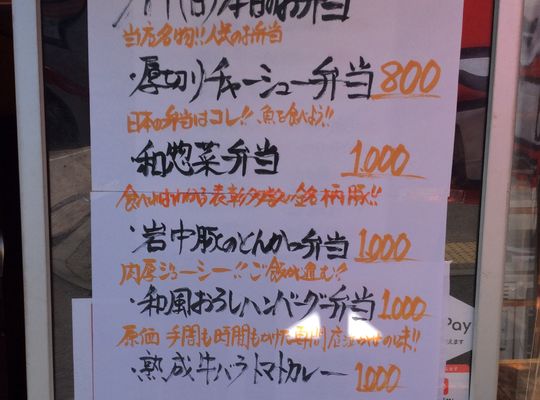 (日)本日のお弁当
当店名物!!人気のお弁当
・厚切りチャーシュー弁当 800
日本の弁当はコレ!! 魚を食べよう!!
・和惣菜弁当 1,000
食べればわかる 銘柄豚!!
・岩中豚のとんかつ弁当 1,000
肉厚ジューシー!! ご飯が進む!!
・和風おろしハンバーグ弁当 1,000
原価 手間も時間もかけた専門店 の味!!
・熟成牛バラトマトカレー 1,000
Pay